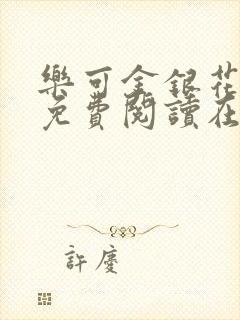 樂可金銀花
免費閱讀在
許慶